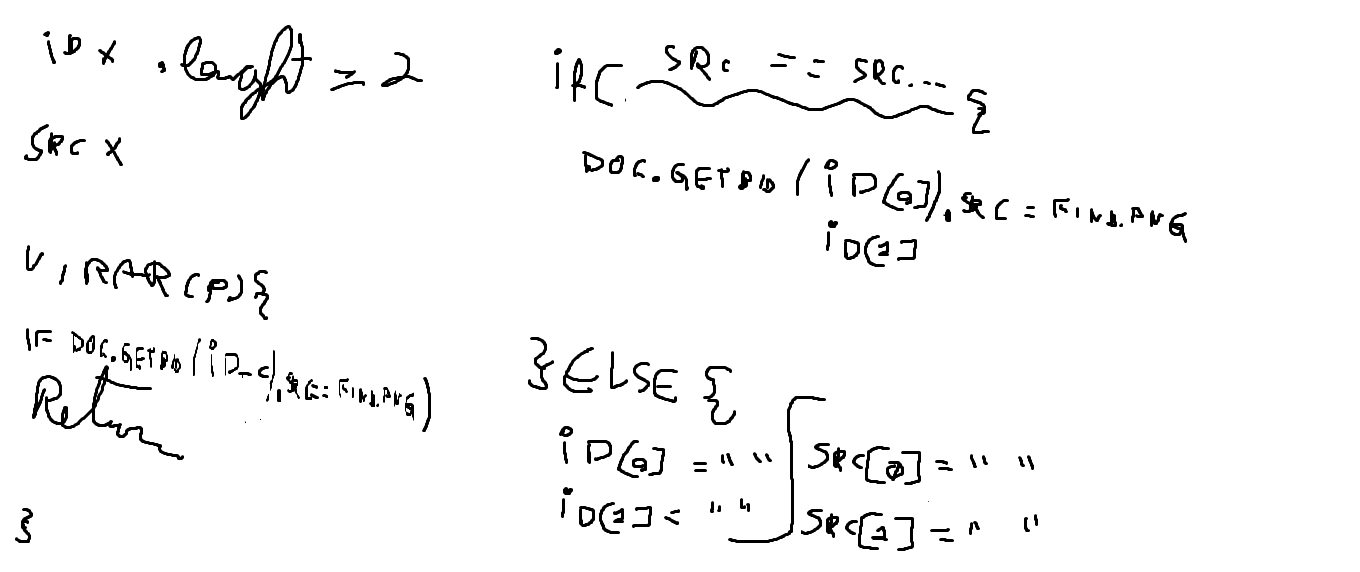 iD x .lenght = 2
SRC x
VIRAR(P){
IF DOC.GETBID(iD-C).SRC=FIND.PNG)
Return
}
if( SRC == SRC... {
DOC.GETBID(iD[0]).SRC = FIND.PNG
iD[1]
}ELSE{
iD[0] = " " SRC[0] = " "
iD[1] = " " SRC[1] = " "